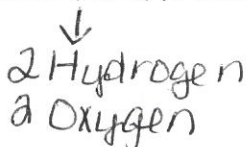 2 Hydrogen
2 Oxygen